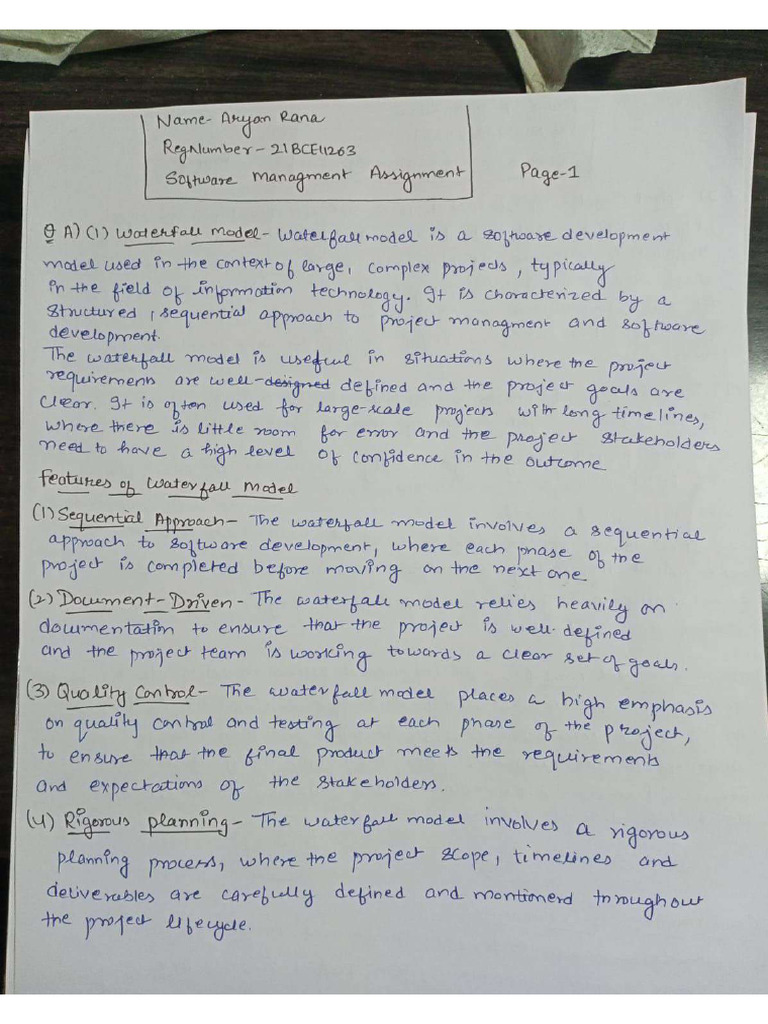 Name- Aryan Rana
RegNumber - 21BCE11263
Software Managment Assignment
Page-1
Q A) (1) Waterfall model - Waterfall model is a software development
model used in the context of large, complex projects, typically
in the field of information technology. It is characterized by a
structured, sequential approach to project managment and software
development.
The waterfall model is useful in situations where the project
requirements are well-designed defined and the project goals are
clear. It is often used for large-scale projects with long timelines,
where there is little room for error and the project stakeholders
need to have a high level of confidence in the outcome
Features of Waterfall Model
(1) Sequential Approach - The waterfall model involves a sequential
approach to software development, where each phase of the
project is completed before moving on the next one.
(2) Document-Driven - The waterfall model relies heavily on
documentation to ensure that the project is well-defined
and the project team is working towards a clear set of goals.
(3) Quality Control - The waterfall model places a high emphasis
on quality control and testing at each phase of the project,
to ensure that the final product meets the requirements
and expectations of the stakeholders.
(4) Rigorous planning - The waterfall model involves a rigorous
planning process, where the project scope, timelines and
deliverables are carefully defined and montionerd throughout
the project lifecycle.